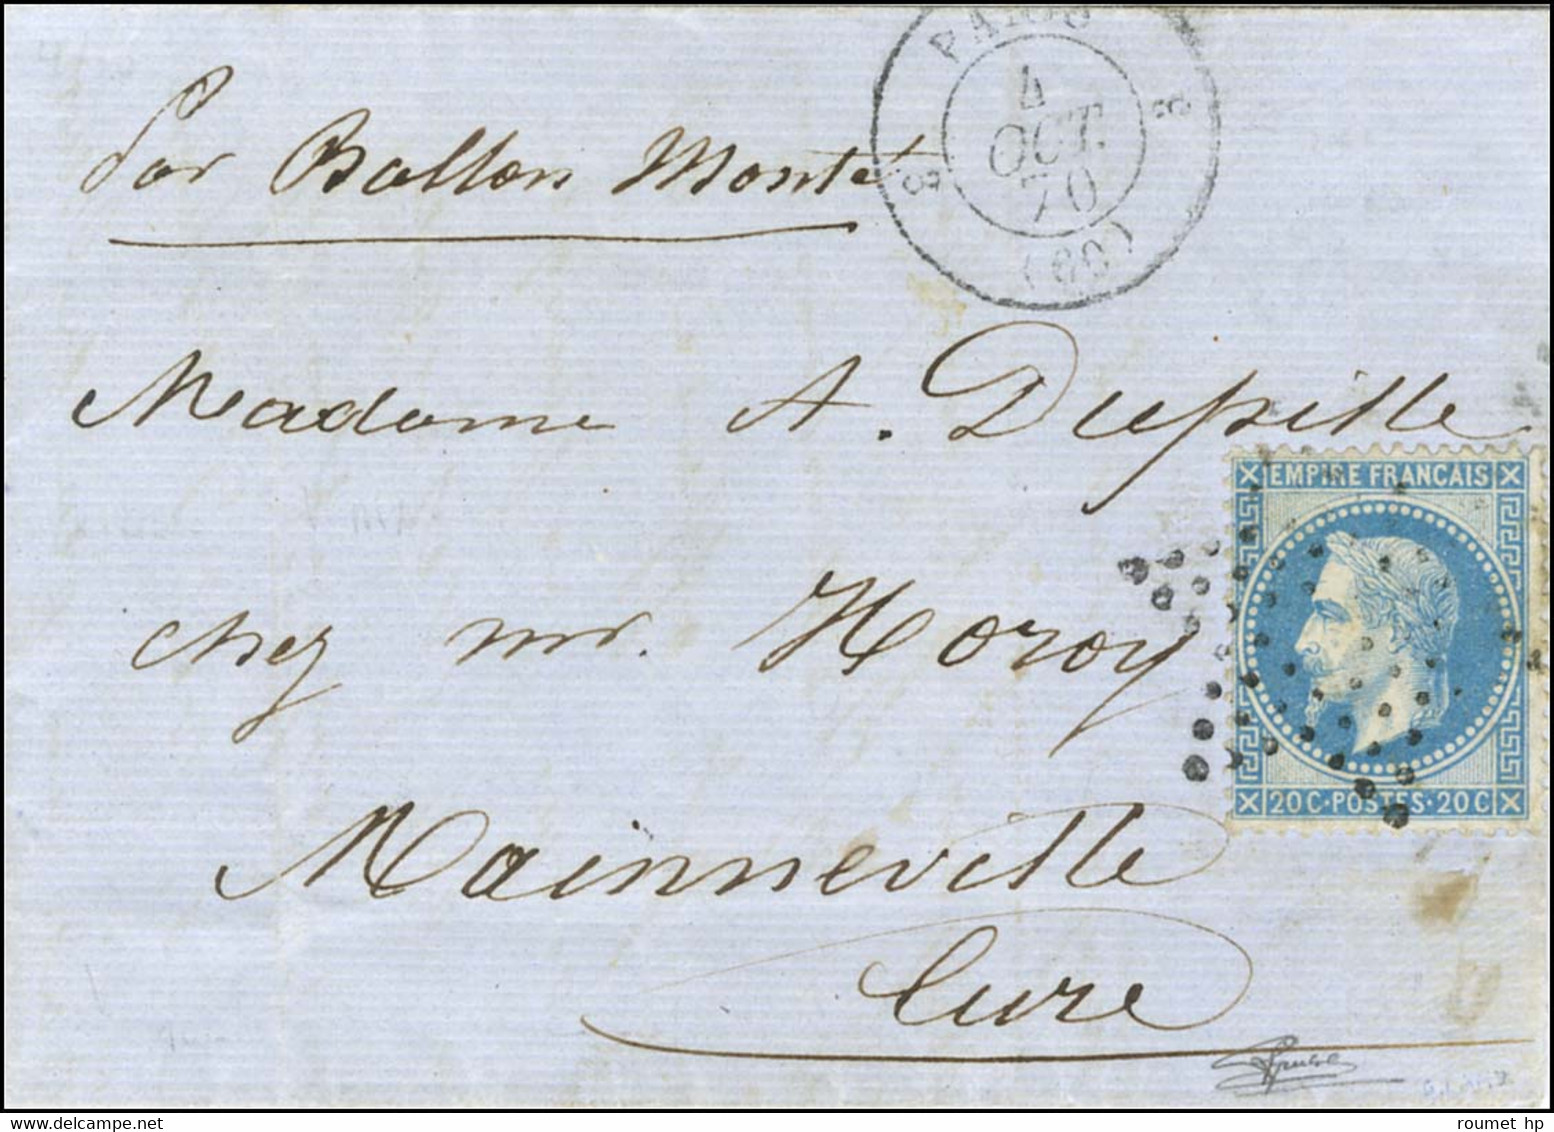 PARIS
4
OCT.
70
(60)
3 3
Par Ballon Monté
Madame A. Dupille
EMPIRE FRANCAIS
chez mr. Horoy
20 C·POSTES·20 C
Mainneville
Eure
roumet hp